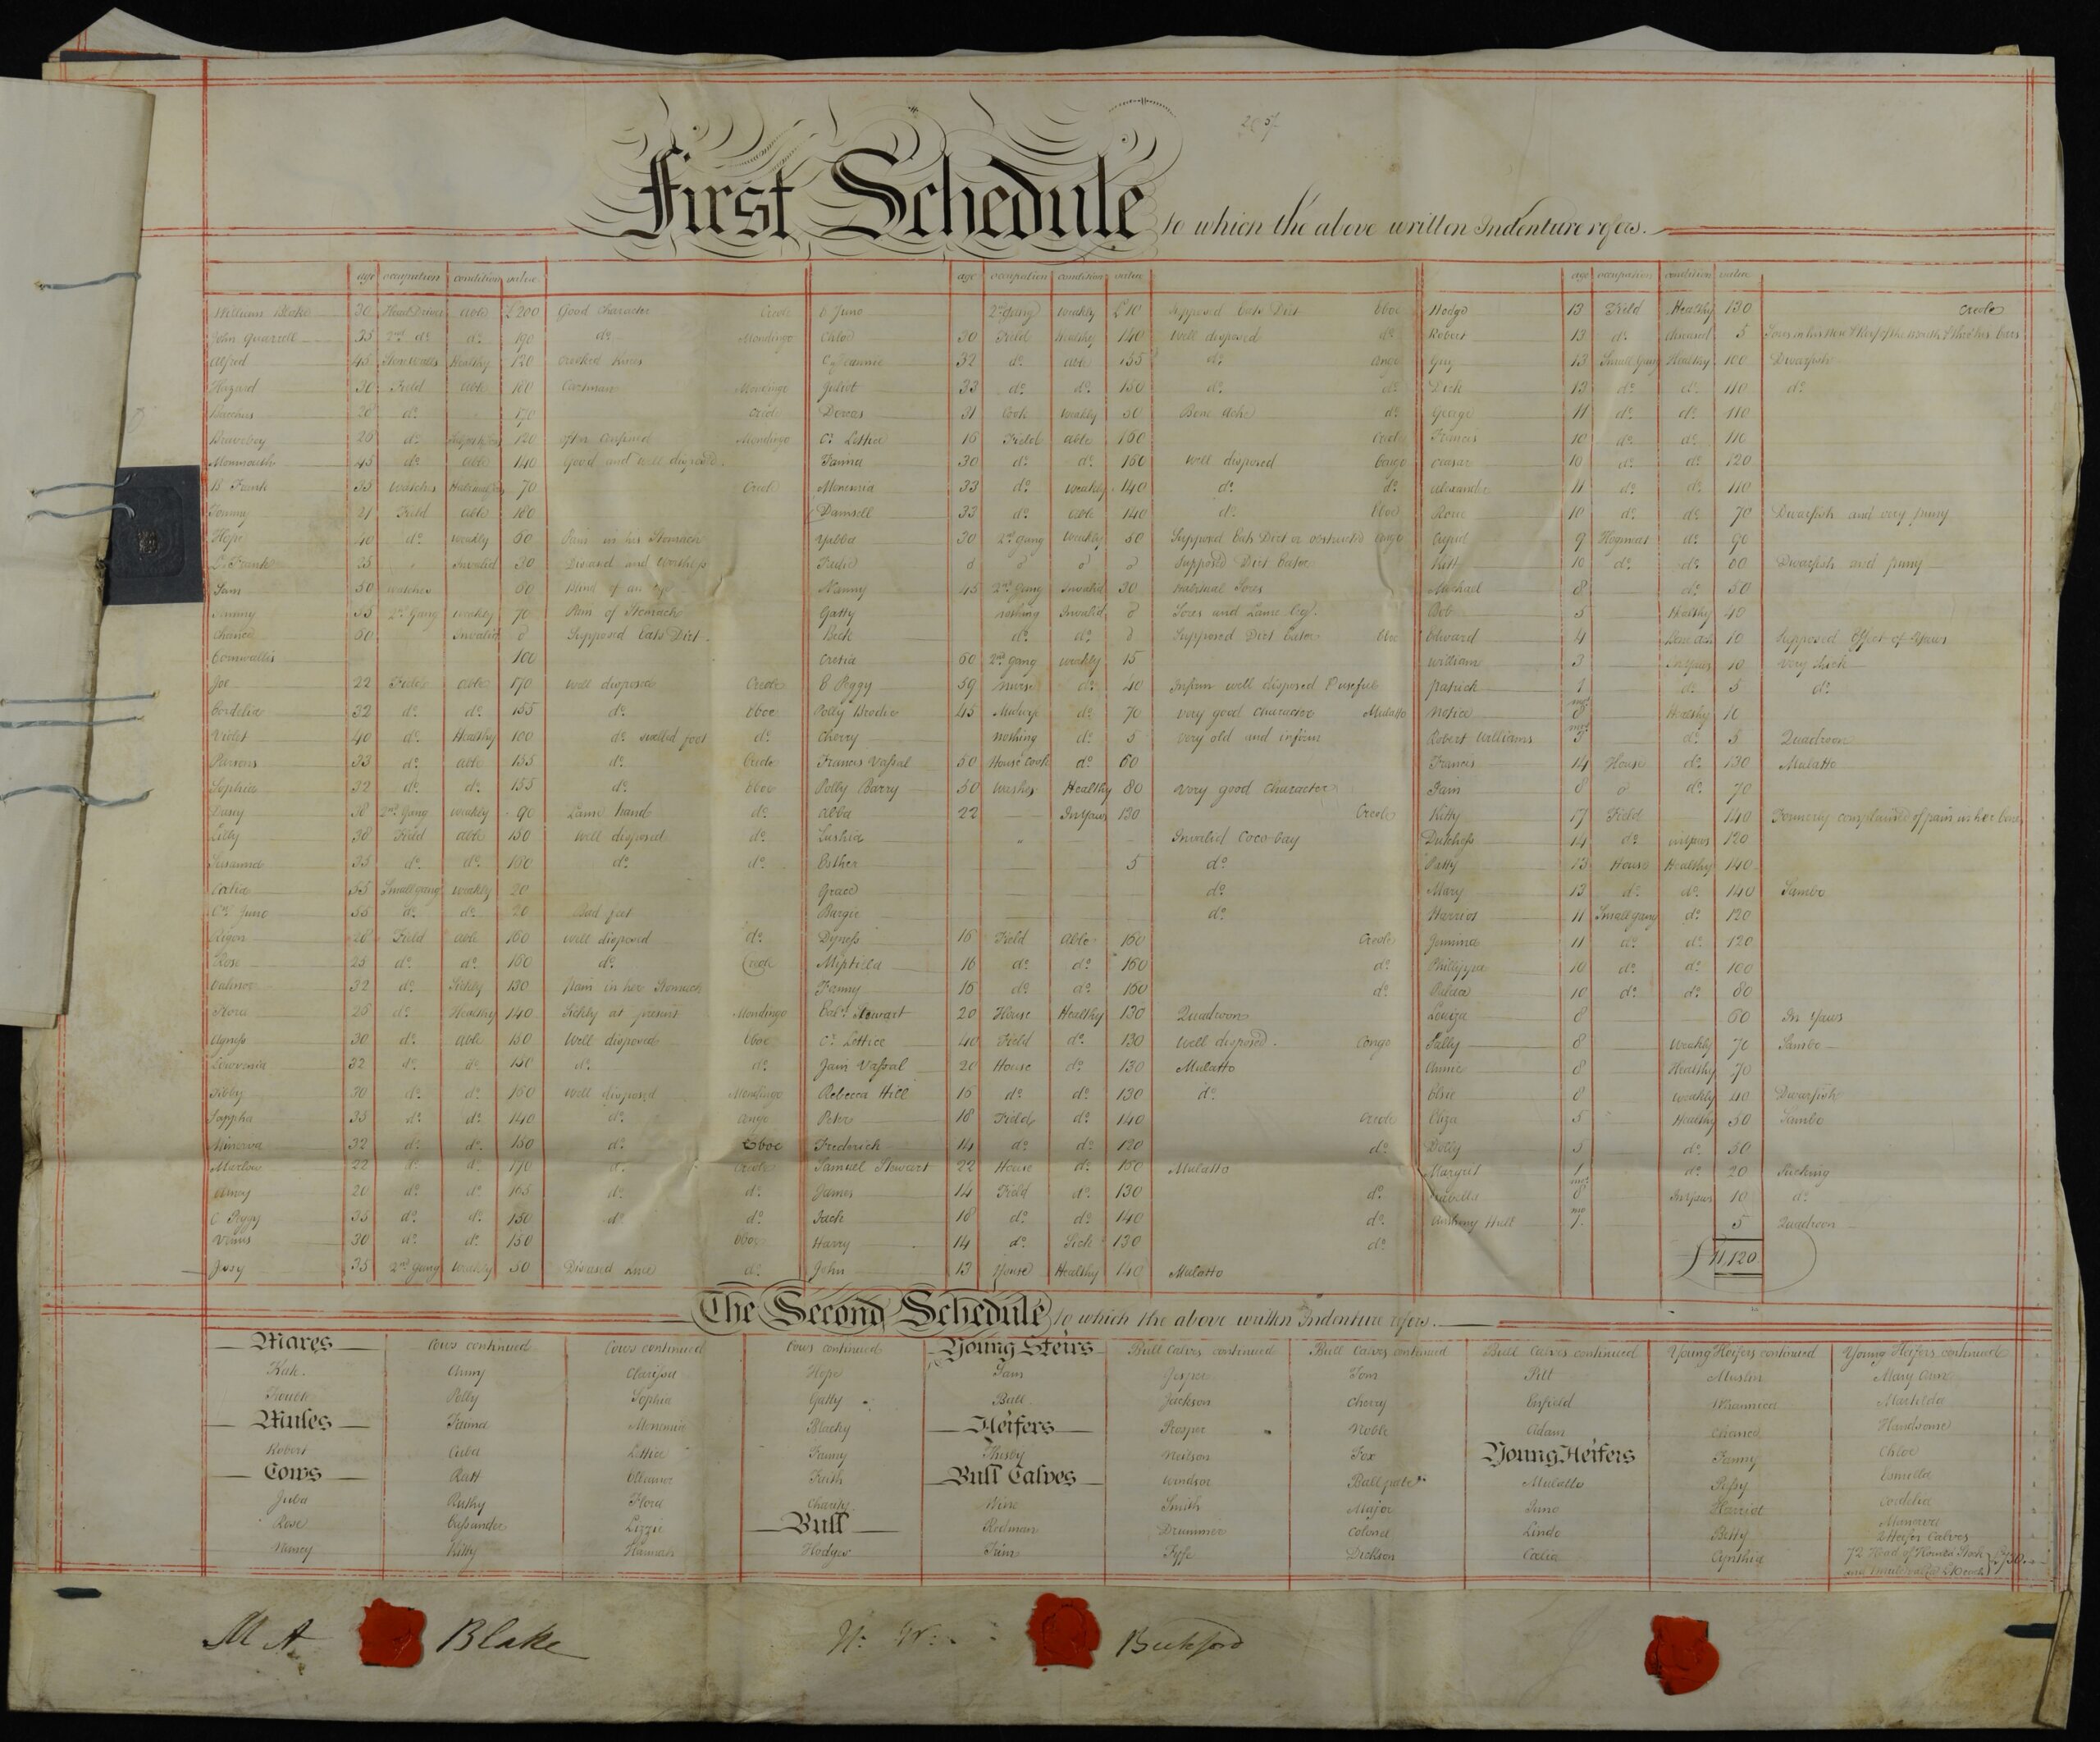 First Schedule to which the above written Indenture refers.
age occupation condition value
William Blake 30 Head Driver able £200 Good Character Creole
John Quarrell 35 2nd do. do. 190 do. Mondingo
Alfred 45 Healthy 120 Crooked Knees
Hazard 30 Field able 160 Cartman Mondingo
Bacchus 28 do. 170 Creole
Braveboy 28 do. 120 often confined Mondingo
Monmouth 45 do. able 140 Good and well disposed
B Frank 35 Watches 70 Creole
Tommy 21 Field able 180
Hope 40 do. weakly 60 Pain in his Stomach
D. Frank 25 Invalid 30 Diseased and Worthless
Sam 50 watches 60 Blind of an eye
Sammy 35 2nd Gang weakly 70 Pain of Stomach
Chance 60 Invalid 0 Supposed Eats Dirt
Cornwallis 100
Joe 22 Field able 170 well disposed Creole
Cordelia 32 do. do. 155 do. Eboe
Violet 40 do. Healthy 100 do. swelled foot do.
Parsons 33 do. able 155 do. Creole
Sophia 32 do. do. 155 do. Eboe
Daisy 38 2nd Gang weakly 90 Lame hand do.
Lilly 38 Field able 150 well disposed do.
Susanna 35 do. do. 160 do. do.
Celia 55 Small gang weakly 20
Cs. Juno 55 do. do. 20 Bad feet
28 Field able 160 well disposed do.
Rose 25 do. do. 160 do. Creole
32 do. Sickly 130 pain in her Stomach
Flora 25 do. Healthy 140 Sickly at present Mondingo
Agness 30 do. able 150 Well disposed Eboe
32 do. do. 150 do. do.
Tibby 30 do. do. 160 well disposed Mondingo
Sappha 35 do. do. 140 do. Congo
Minerva 32 do. do. 150 do. Eboe
22 do. do. 170 do. Creole
Amey 20 do. do. 165 do. do.
C Peggy 35 do. do. 150 do. do.
Venus 30 do. do. 150 Eboe
Jessy 35 2nd gang weakly 50 Diseased Knee do.
age occupation condition value
E Juno 2nd gang weakly £10 Supposed Eats Dirt Eboe
Chloe 30 Field Healthy 140 Well disposed do.
32 do. able 155 do. Congo
Juliet 33 do. do. 150 do. do.
Dorcas 31 Cook weakly 50 Bone Ache do.
Cs. Lettice 16 Field able 160 Creole
Fanna 30 do. do. 160 well disposed Congo
Monemia 33 do. weakly 140 do. do.
Damsell 33 do. able 140 do. Eboe
Yabba 30 2nd gang Weakly 50 Supposed Eats Dirt or obstructed Congo
0 0 0 0 Supposed Dirt Eater
Nanny 45 2nd Gang Invalid 30 Habitual Sores
Gatty nothing Invalid 0 Sores and Lame Leg.
Beck do. do. 0 Supposed Dirt Eater Eboe
Cretia 60 2nd gang weakly 15
E Peggy 59 Nurse do. 40 Infirm well disposed & useful
Polly Brodie 45 Midwife do. 70 very good character Mulatto
Cherry nothing do. 5 very old and infirm
Frances Vassal 50 House Cook do. 60
Polly Barry 50 Washer Healthy 80 very good character
Abba 22 In Yaws 130 Creole
Lushia Invalid Coco bay
Esther 5 do.
Grace do.
Bargie do.
Dyness 16 Field Able 160 Creole
Mifsield 16 do. do. 160 do.
Fanny 16 do. do. 160 do.
Eabh. Stewart 20 House Healthy 130 Quadroon
Cs. Lettice 40 Field do. 130 well disposed. Congo
Jain Vassal 20 House do. 130 Mulatto
Rebecca Hill 16 do. do. 130 do.
Peter 18 Field do. 140 Creole
Frederick 14 do. do. 120 do.
Samuel Stewart 22 House do. 150 Mulatto
James 14 Field do. 130 do.
Jack 18 do. do. 140 do.
Harry 14 do. Sick 130 do.
John 13 House Healthy 140 Mulatto
age occupation condition value
Hodge 13 Field Healthy 130 Creole
Robert 13 do. diseased 5
Guy 13 Small Gang Healthy 100 Dwarfish
Dick 13 do. do. 110 do.
George 11 do. do. 110
Francis 10 do. do. 110
Ceasar 10 do. do. 120
Alexander 11 do. do. 110
10 do. do. 70 Dwarfish and very puny
Cupid 9 Hogmeat do. 90
Kitt 10 do. do. 60 Dwarfish and puny
Michael 8 do. 50
Bob 5 Healthy 40
Edward 4 Bone ach 10 Supposed Effect of Yaws
William 3 In Yaws 10 Very thick
Patrick 1 do. 5 do.
Notice mos 8 Healthy 10
Robert Williams mos 3 do. 5 Quadroon
Frances 14 House do. 130 Mulatto
Jain 8 0 do. 70
Kitty 17 Field 140 Formerly complained of pain in her bones
Dutchess 14 do. in yaws 120
Patty 13 House Healthy 140
Mary 13 do. do. 140 Sambo
Harriot 11 Small gang do. 120
Jemima 11 do. do. 120
Phillippa 10 do. do. 100
10 do. do. 80
Louiza 8 60 In Yaws
Sally 8 Weakly 70 Sambo
Annie 8 Healthy 70
Elsie 8 Weakly 40 Dwarfish
Eliza 5 Healthy 50 Sambo
Dolly 5 do. 50
Margrit 1 do. 20 Sucking
Isabella mos 8 In Yaws 10 do.
Anthony Hall mo 7 5 Quadroon
£11,120
The Second Schedule to which the above written Indenture refers.
Mares
Kate
Trouble
Mules
Robert
Cows
Juba
Rose
Nancy
Cows continued
Amny
Polly
Fanna
Cuba
Ruth
Ruthy
Cassander
Kitty
Cows continued
Clarissa
Sophia
Monemia
Lettice
Eleanor
Flora
Lizzie
Hannah
Cows continued
Hope
Gatty
Blacky
Fanny
Faith
Charity
Bull
Hodges
Young Steirs
Sam
Ball
Heifers
Thisby
Bull Calves
Redman
Bull Calves continued
Jesper
Jackson
Prosper
Neilson
Windsor
Smith
Drummer
Fyffe
Bull Calves continued
Tom
Cherry
Noble
Fox
Baldpate
Major
Colonel
Dickson
Bull Calves continued
Pitt
Enfield
Adam
Young Heifers
Mulatto
Juno
Linda
Celia
Young Heifers continued
Muslin
Chance
Fanny
Pessy
Harriot
Betty
Cynthia
Young Heifers continued
Mary Ann
Matilda
Handsome
Chloe
Esmella
Cordelia
Manerva
2 Heifer Calves
72 Head of Horned Stock
M A Blake
Beckford